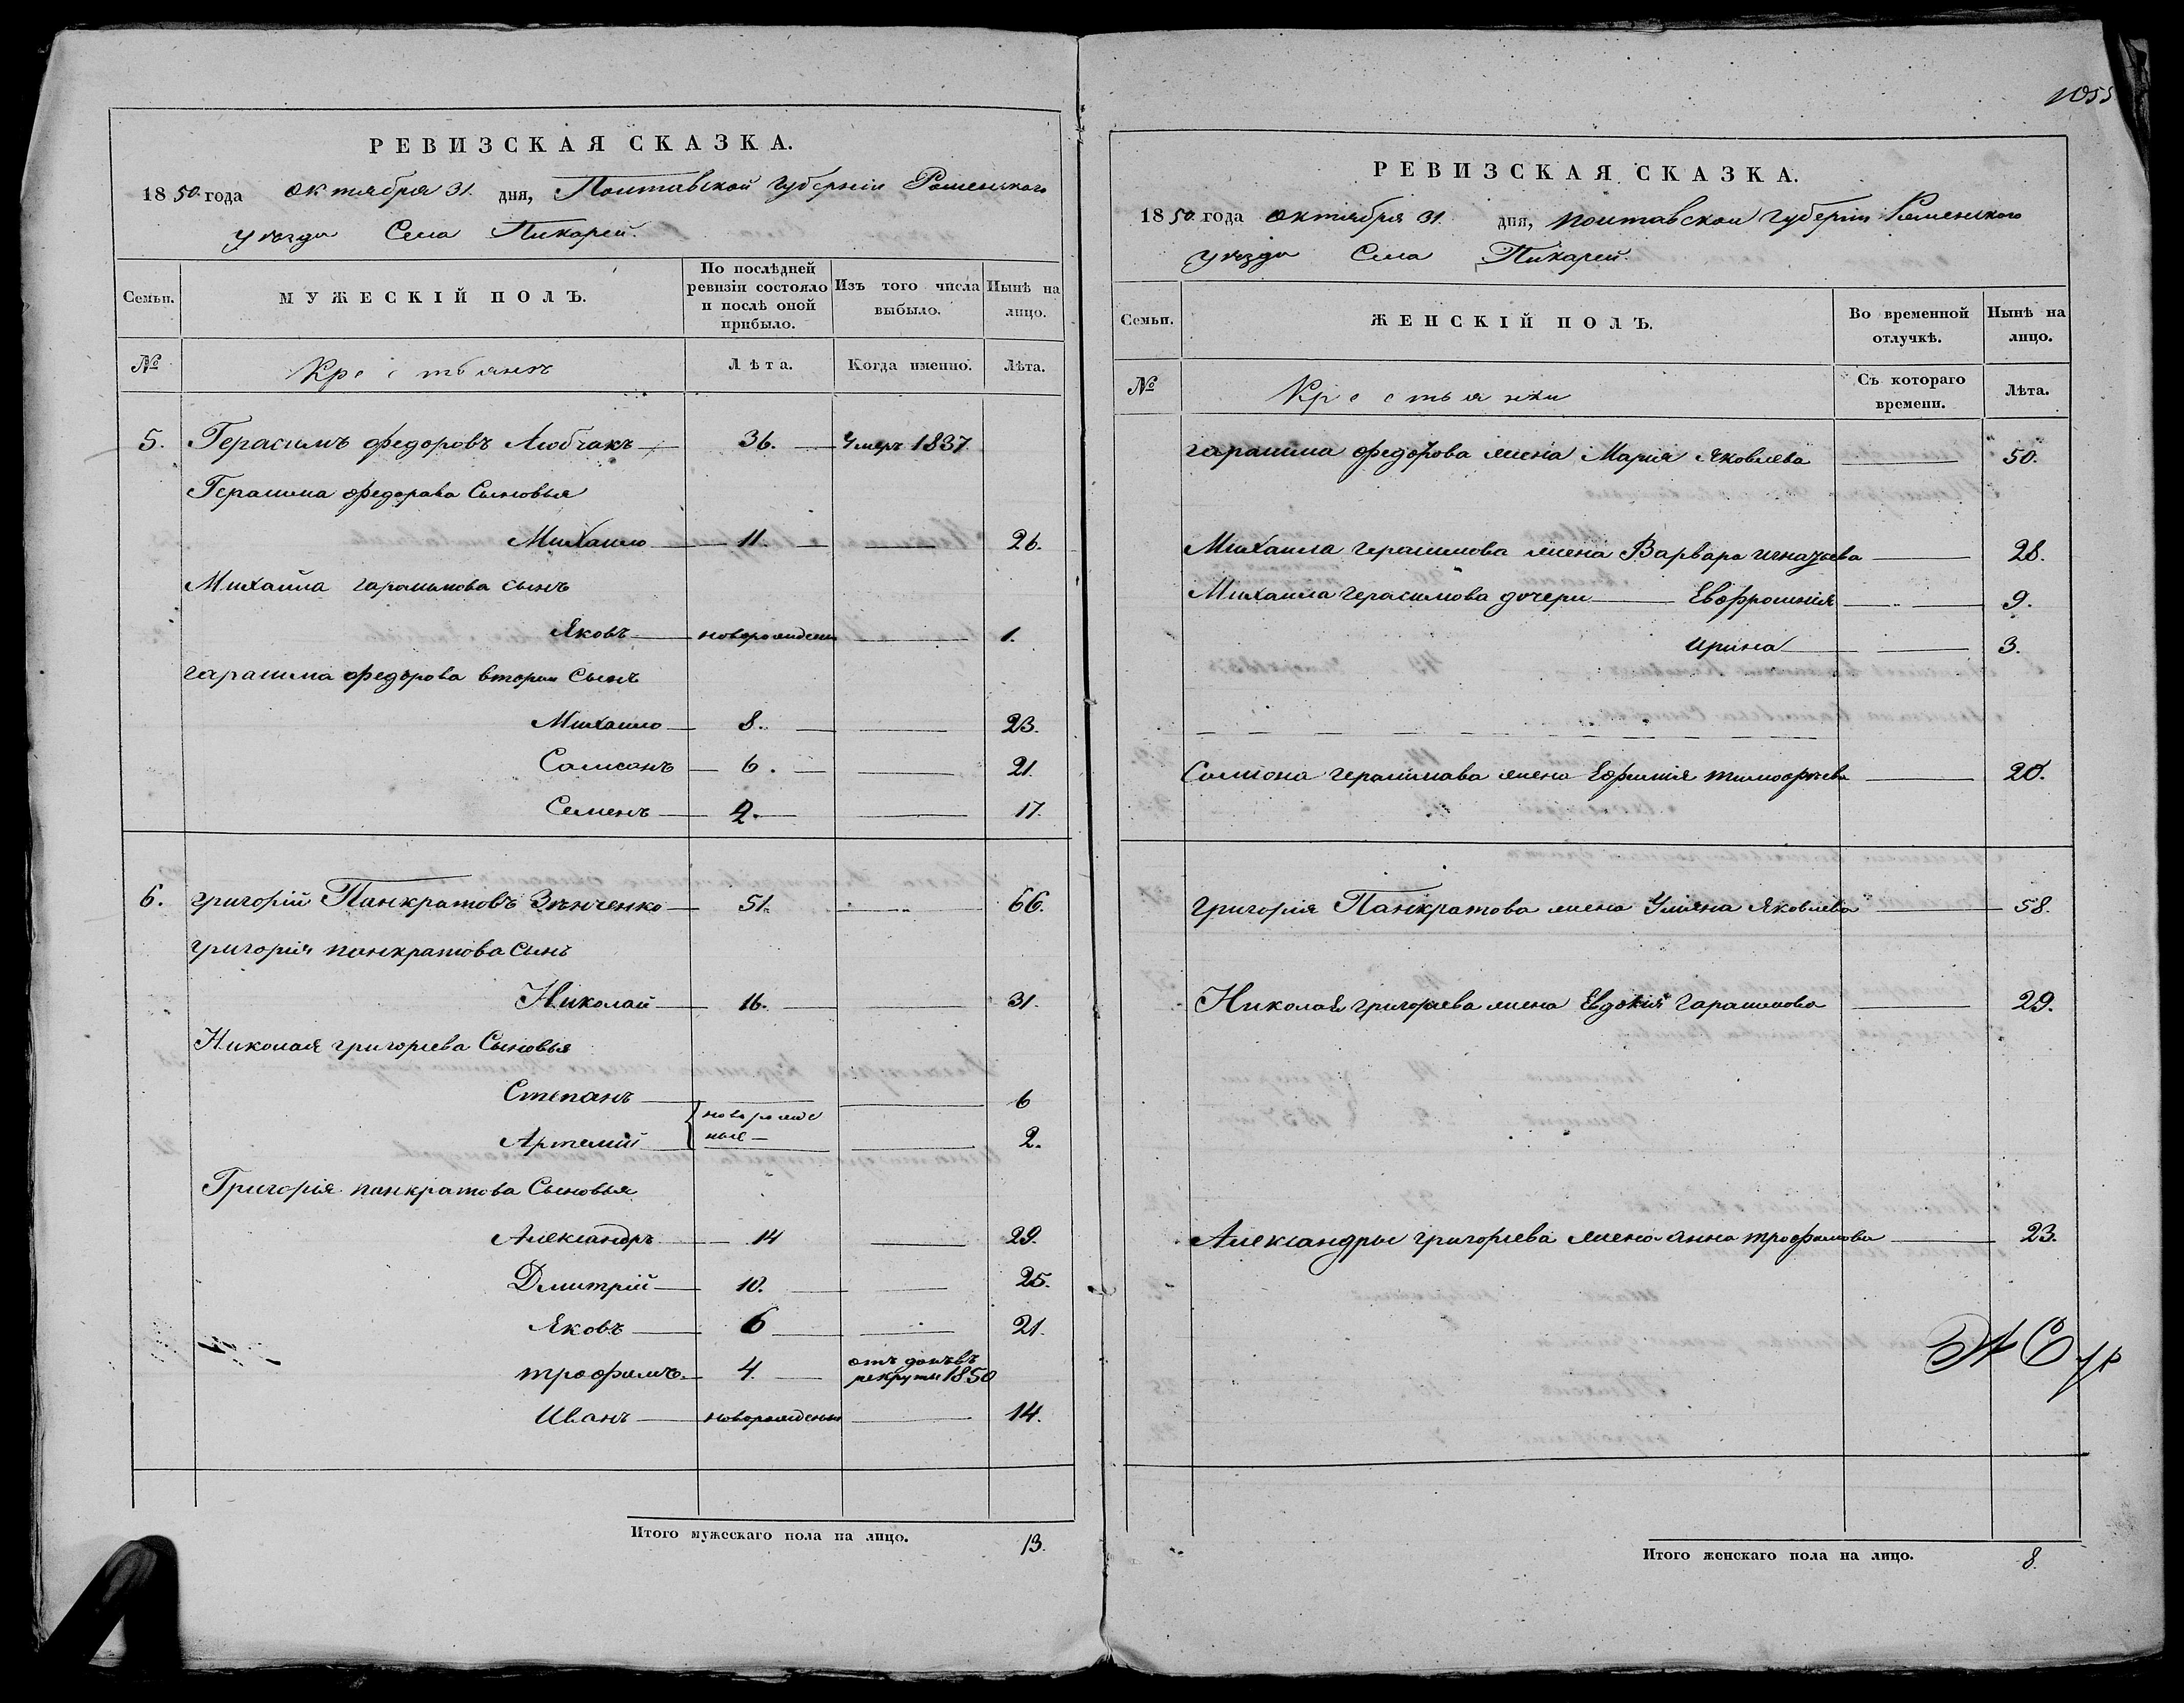 РЕВИЗСКАЯ СКАЗКА.
1850 года октября 31. дня, Полтавской губерніи Роменскаго
уезда Села Пикарей.
Семьи. МУЖЕСКІЙ ПОЛЪ. По послѣдней ревизіи состояло и послѣ оной прибыло. Изъ того числа выбыло. Нынѣ на лицо.
№ Крестьянъ Лѣта. Когда именно. Лѣта.
5. Герасимъ федоровъ Любчакъ 36. Умеръ 1837.
Герасима федорава Сыновья
Михайло 11. 26.
Михайла гарасимова сынъ
Яковъ новорожденъ 1.
гарасима федорова вторий Сынъ
Михайло 8. 23.
Самсонъ 6. 21.
Семенъ 2. 17.
6. григорій Панкратовъ Зѣнченко 51. 66.
григорія панкратова Сынъ
Николай 16. 31.
Николая григорьева Сыновья
Степанъ 6
новорожде
ные
Артемій 2.
Григорія панкратова Сыновья
Александръ 14 29.
Дмитрій 10. 25.
Яковъ 6 21.
трофимъ 4. рекруты 1850
Иванъ новорожденъ 14.
Итого мужескаго пола на лицо. 13.
1055
РЕВИЗСКАЯ СКАЗКА.
1850 года октября 31. дня, полтавской губерніи Роменского
уезда Села Пикарей.
Семьи. ЖЕНСКІЙ ПОЛЪ. Во временной отлучкѣ. Нынѣ на лицо.
№ Крестьянки Съ котораго времени. Лѣта.
гарасима федорова жена Мария Яковлева 50.
Михаила герасимова жена Варвара игнатьева 28.
Михаила герасимова дочери Евфросинія 9.
Ирина 3.
Самсона герасимава жена Ефимія тимофѣева 20.
григорія Панкратова жена Уляна Яковлева 58.
Николая григорьева жена Евдокія гарасимова 29.
Александры григорьева жена анна трофимова 23.
Итого женскаго пола на лицо. 8.